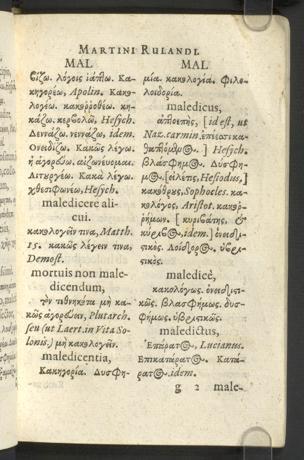 MARTINI RULANDI.
MAL
λόγοις ἰάπτω. Κα-
κηγορέω, Apolin. Κακο-
λογέω. κακορροθέω. κη-
κάζω. κερβολῶ, Hesych.
Δεννάζω. idem.
Ονειδίζω. Κακῶς λέγω.
ἢ ἀγορεύω.
Κακὰ λέγω.
Hesych.
maledicere ali-
cui.
κακολογεῖν τινα, Matth.
15. κακῶς λέγειν τινα,
Demost.
mortuis non male-
dicendum,
τὸν τεθνηκότα μὴ κα-
κῶς ἀγορεύειν, Plutarch.
seu (ut Laert. in Vita So-
lonis.) μὴ κακολογεῖν.
maledicentia,
Κακηγορία. Δυσφη-
MAL
μία. κακολογία. Φιλο-
λοιδορία.
maledicus,
[id est, ut
Naz. carmin.
] Hesych.
βλάσφημος. Δύσφη-
μος. Hesodus,]
Sophocles. κα-
κολόγος, Aristot. κακο-
ρήμων. &
idem.
τικός. Λοίδορος. ὑβρισ-
τικός.
maledicè,
κακολόγως. ὀνειδιστι-
κῶς. βλασφήμως. δυσ-
φήμως. ὑβριστικῶς.
maledictus,
Επάρατος, Lucianus.
Επικατάρατος. Κατά-
ρατος. idem.
g 2 male-